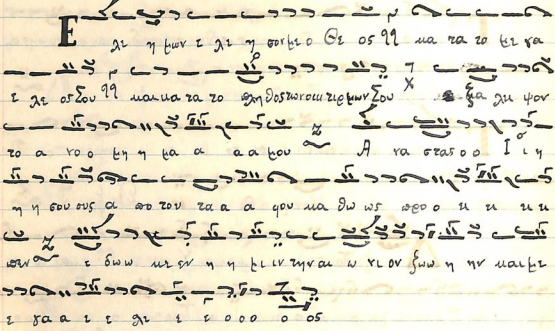 Ε λε η μων ε λε η σον με ο Θε ος qq κα τα το με γα
ε λε ος Σου qq και κα τα το πληθος των οικτιρμων Σου ξα λει ψον
το α νο ο μη η μα α α α μου Α να στας ο ο Ι η
η η σους α πο του τα α α φου κα θω ως προ ο ει ει ει ει
πεν ε δωω κεν η η μι ιν την αι ω νι ον ζωω η ην και με
ε γα α ε ε λε ε ε ο ο ο ο ος